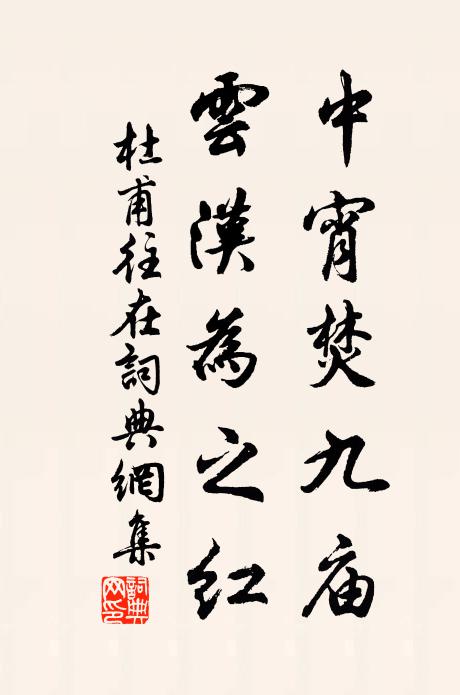 中宵焚九庙
雲漢為之红
杜甫往在詞典網集
詞典网印